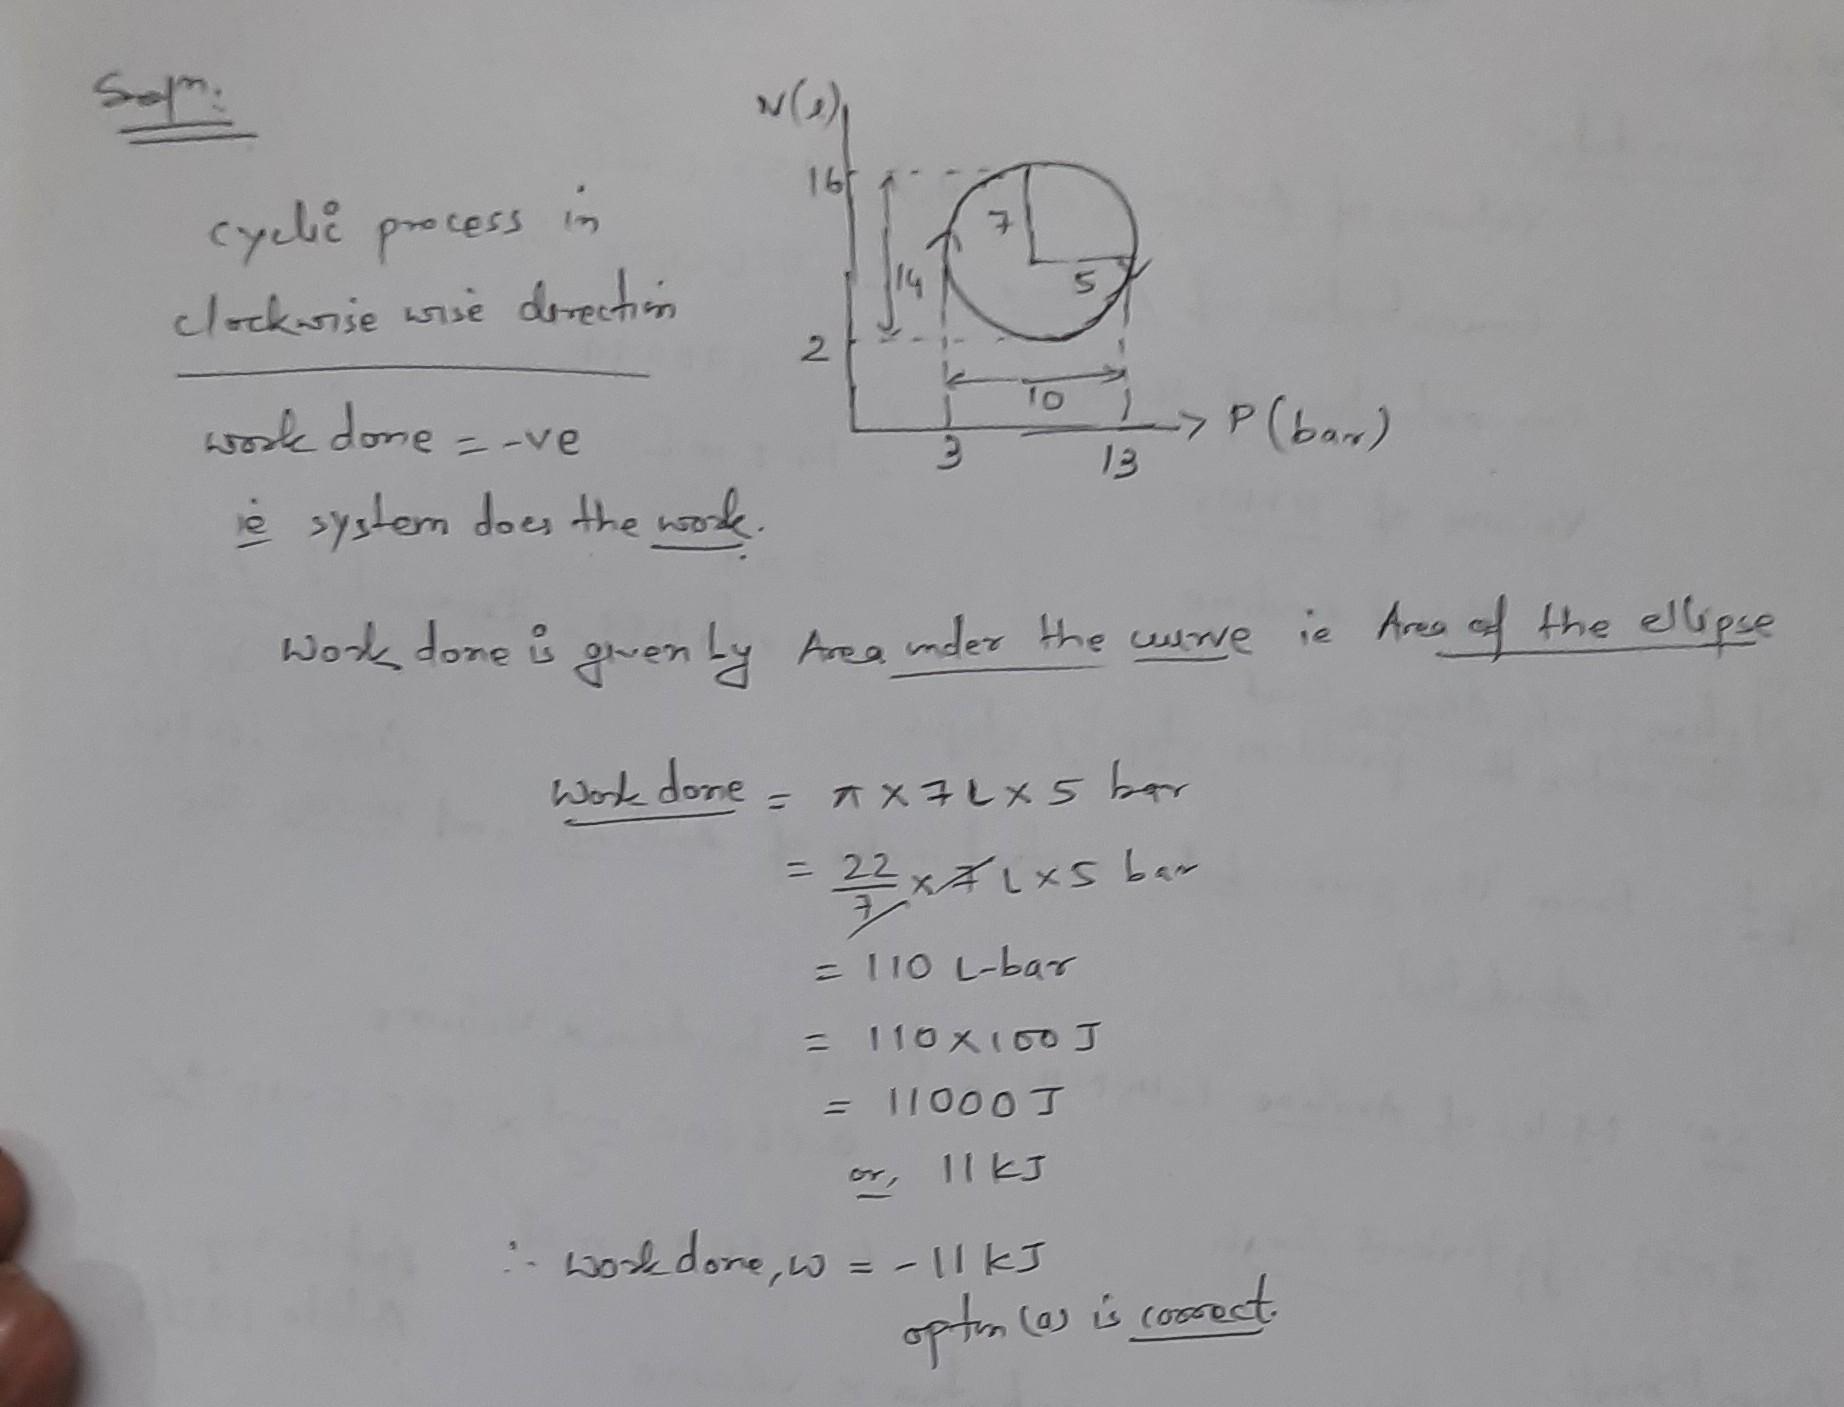 Soln:
V(l)
16
7
5
14
2
10
3
13
P (bar)
cyclic process in
clockwise wise direction
work done = -ve
ie system does the work.
Work done is given by Area under the curve ie Area of the ellipse
Work done = π x 7 L x 5 bar
= 22/7 x 7 L x 5 bar
= 110 L-bar
= 110 x 100 J
= 11000 J
or, 11 kJ
∴ work done, w = - 11 kJ
optin (a) is correct.